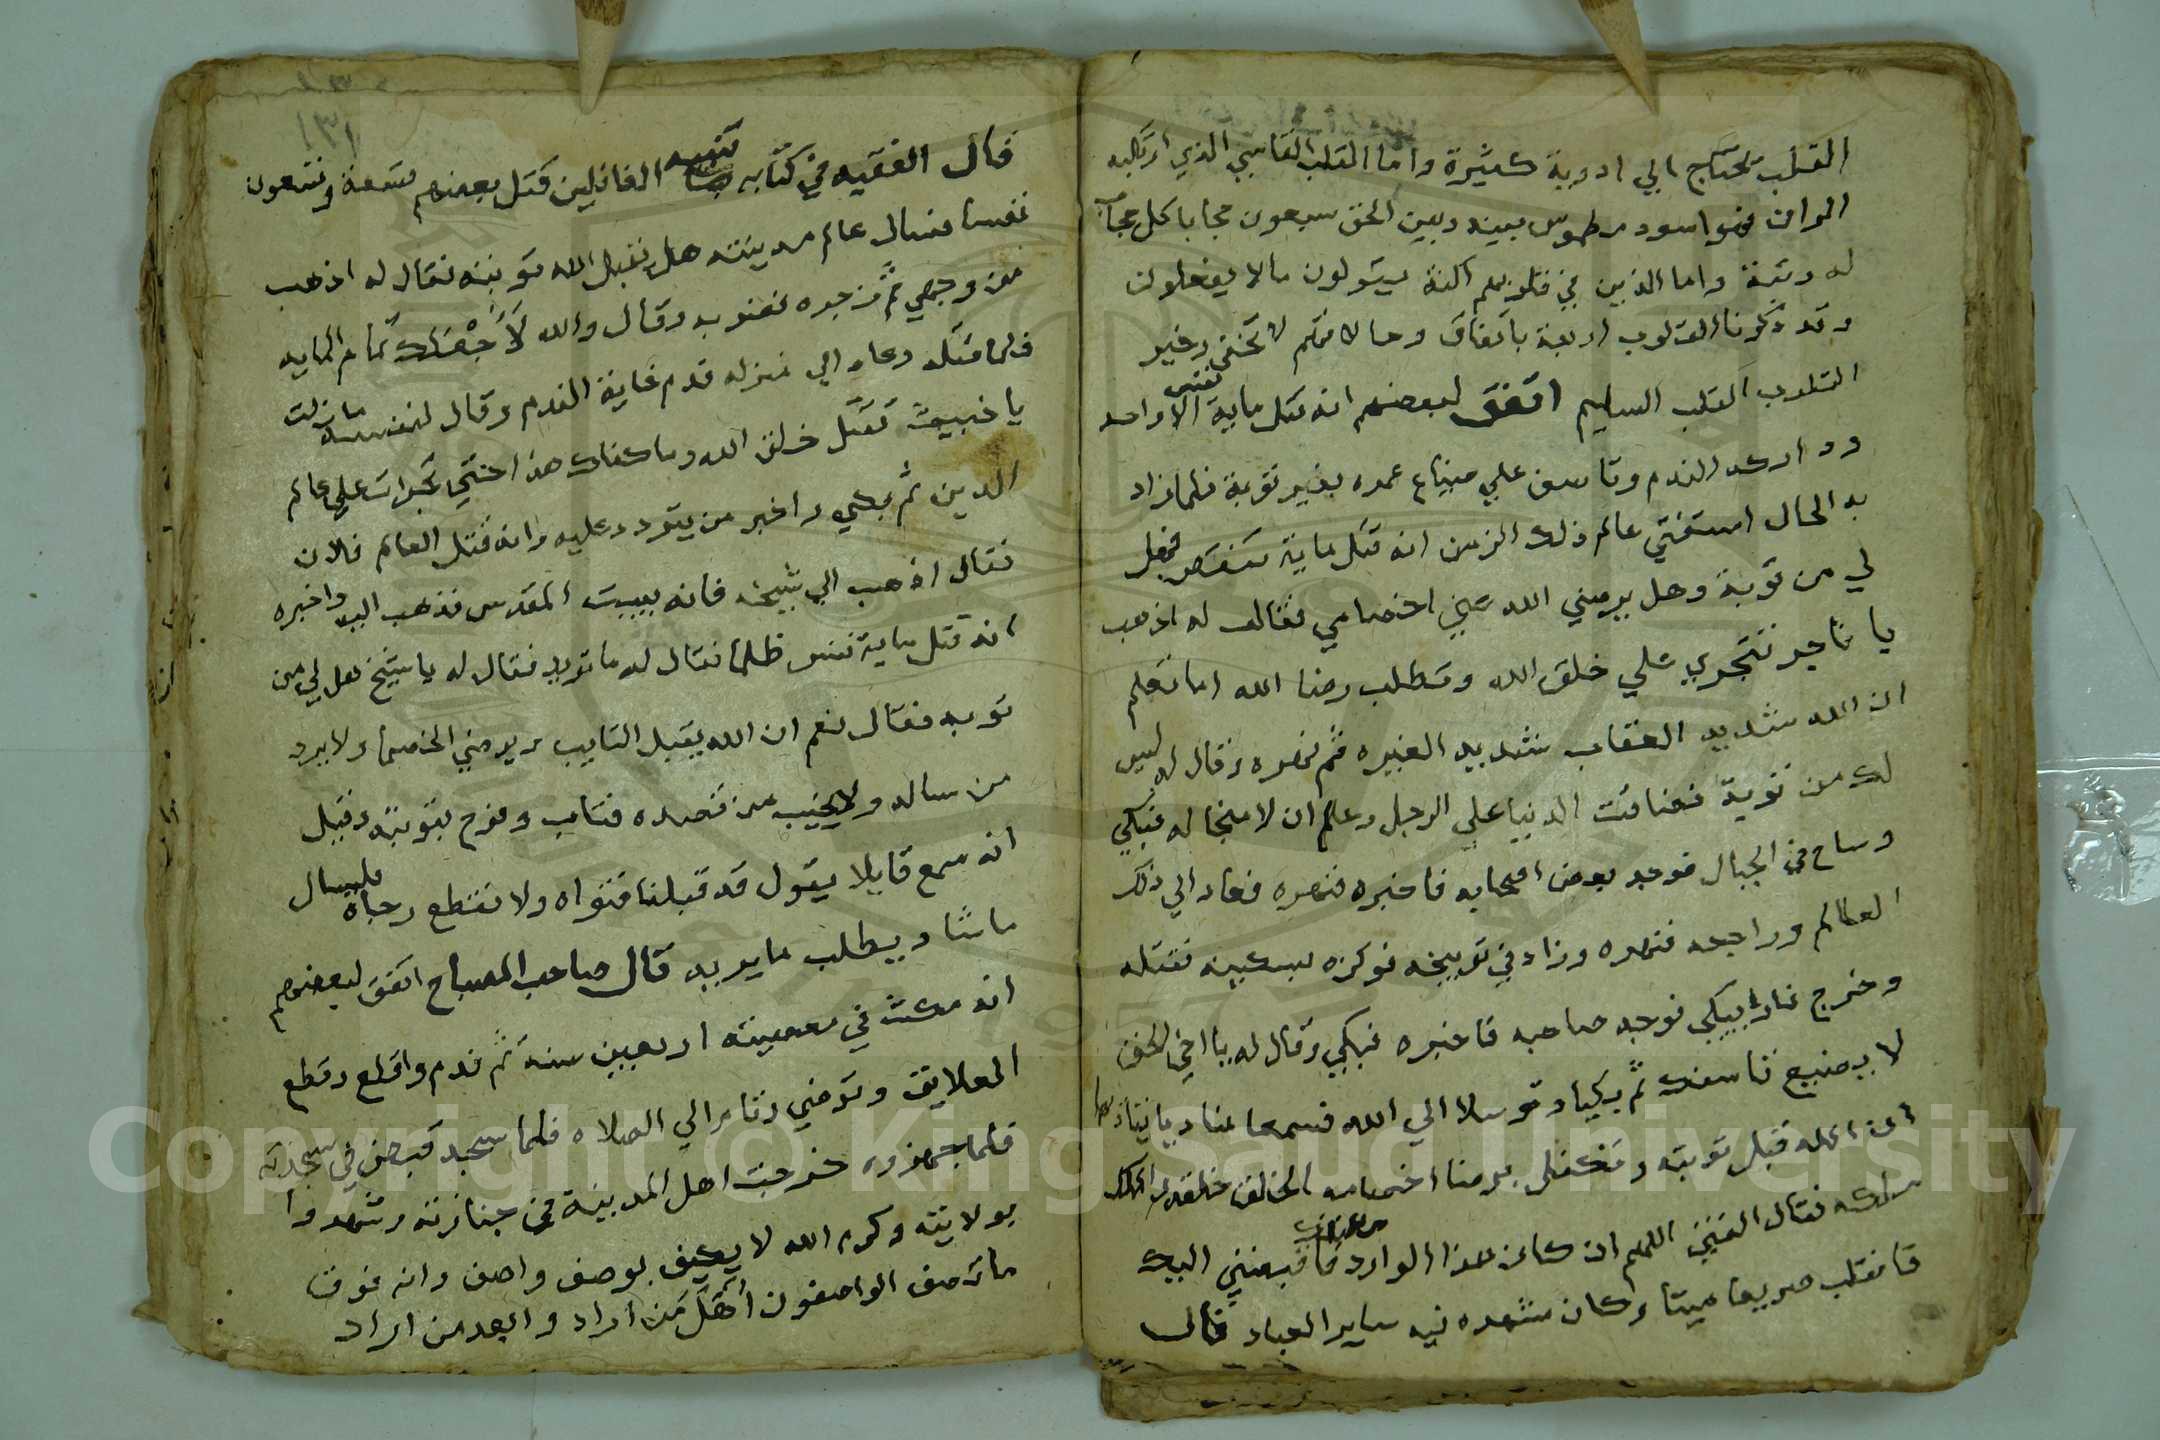 القلب تحتاج الي ادوية كثيرة واما القلب القاسي الذي ارتكبه
الران فهو اسود مطموس بينه وبين الحق سبعون حجابا كل حجاب
له رتبة واما الذين في قلوبهم اكنة يقولون مالا يفعلون
وقد ذكرنا القلوب اربعة باتفاق وحالاتهم لا تخفى وخير
القلوب القلب السليم اتفق لبعضهم انه قتل ماية نفس الا واحد
وادركه الندم وتاسف علي ضياع عمره بغير توبة فلما زاد
به الحال استفتي عالم ذلك الزمن انه قتل ماية فهل
لي من توبة وهل يرضي الله عني اخصامي فقال له اذهب
يا فاجر تتجري علي خلق الله وتطلب رضا الله اما تعلم
ان الله شديد العقاب شديد الغيره ثم نهره وقال له ليس
لك من توبة فضاقت الدنيا علي الرجل وعلم ان لا منجا له فبكي
وساح في الجبال فوجد بعض اصحابه فاخبره فنهره فعاد الي ذلك
العالم وراجعه فنهره وزاد في توبيخه فوكزه بسكينه فقتله
وخرج فارا يبكي فوجد صاحبه فاخبره فبكي وقال له يا اخي الحق
لا يضيع تاسفك ثم بكيا وتوسلا الي الله فسمعا مناديا يناديهما
ان الله قبل توبته وتكفل برضا اخصامه الخالق خلقه والملك
ملكه فقال الفتي اللهم ان كان هذا الوارد من عندك فاقبضني اليك
فانقلب صريعا ميتا وكان مشهده فيه ساير العباد قال
١٣١
قال الفقيه في كتابه تنبيه الغافلين قتل بعضهم تسعة وتسعون
نفسا فسال عالم مدينته هل يقبل الله توبته فقال له اذهب
من وجهي ثم زجره فضربه وقال والله لاجعلنك تمام المايه
فلما قتله وعاد الي منزله ندم غاية الندم وقال لنفسه ما زلت
يا خبيث تقتل خلق الله وما كفاك هذا حتي تجرات علي عالم
الدين ثم بكي واخبر من يتردد عليه وانه قتل العالم فلان
فقال اذهب الي شيخه فانه ببيت المقدس فذهب اليه واخبره
انه قتل ماية نفس ظلما فقال له ما تريد فقال له يا شيخ هل لي من
توبه فقال نعم ان الله يقبل التايب ويرضي الخصما ولا يرد
من ساله ولا يخيب من قصده فتاب وفرح بتوبته وقيل
انه سمع قايلا يقول قد قبلنا فتواه ولا نقطع رجاه فليسال
ما شا ويطلب ما يريد قال صاحب المصباح اتفق لبعضهم
انه مكث في معصيته اربعين سنه ثم ندم واقلع وقطع
العلايق وتوضي وقام الي الصلاه فلما سجد قبض في سجدته
فلما جهزوه خرجت اهل المدينة في جنازته وشهدوا
بولايته وكرم الله لا يكيف بوصف واصف وانه فوق
ما تصف الواصفون اهل من اراد وابعد من اراد